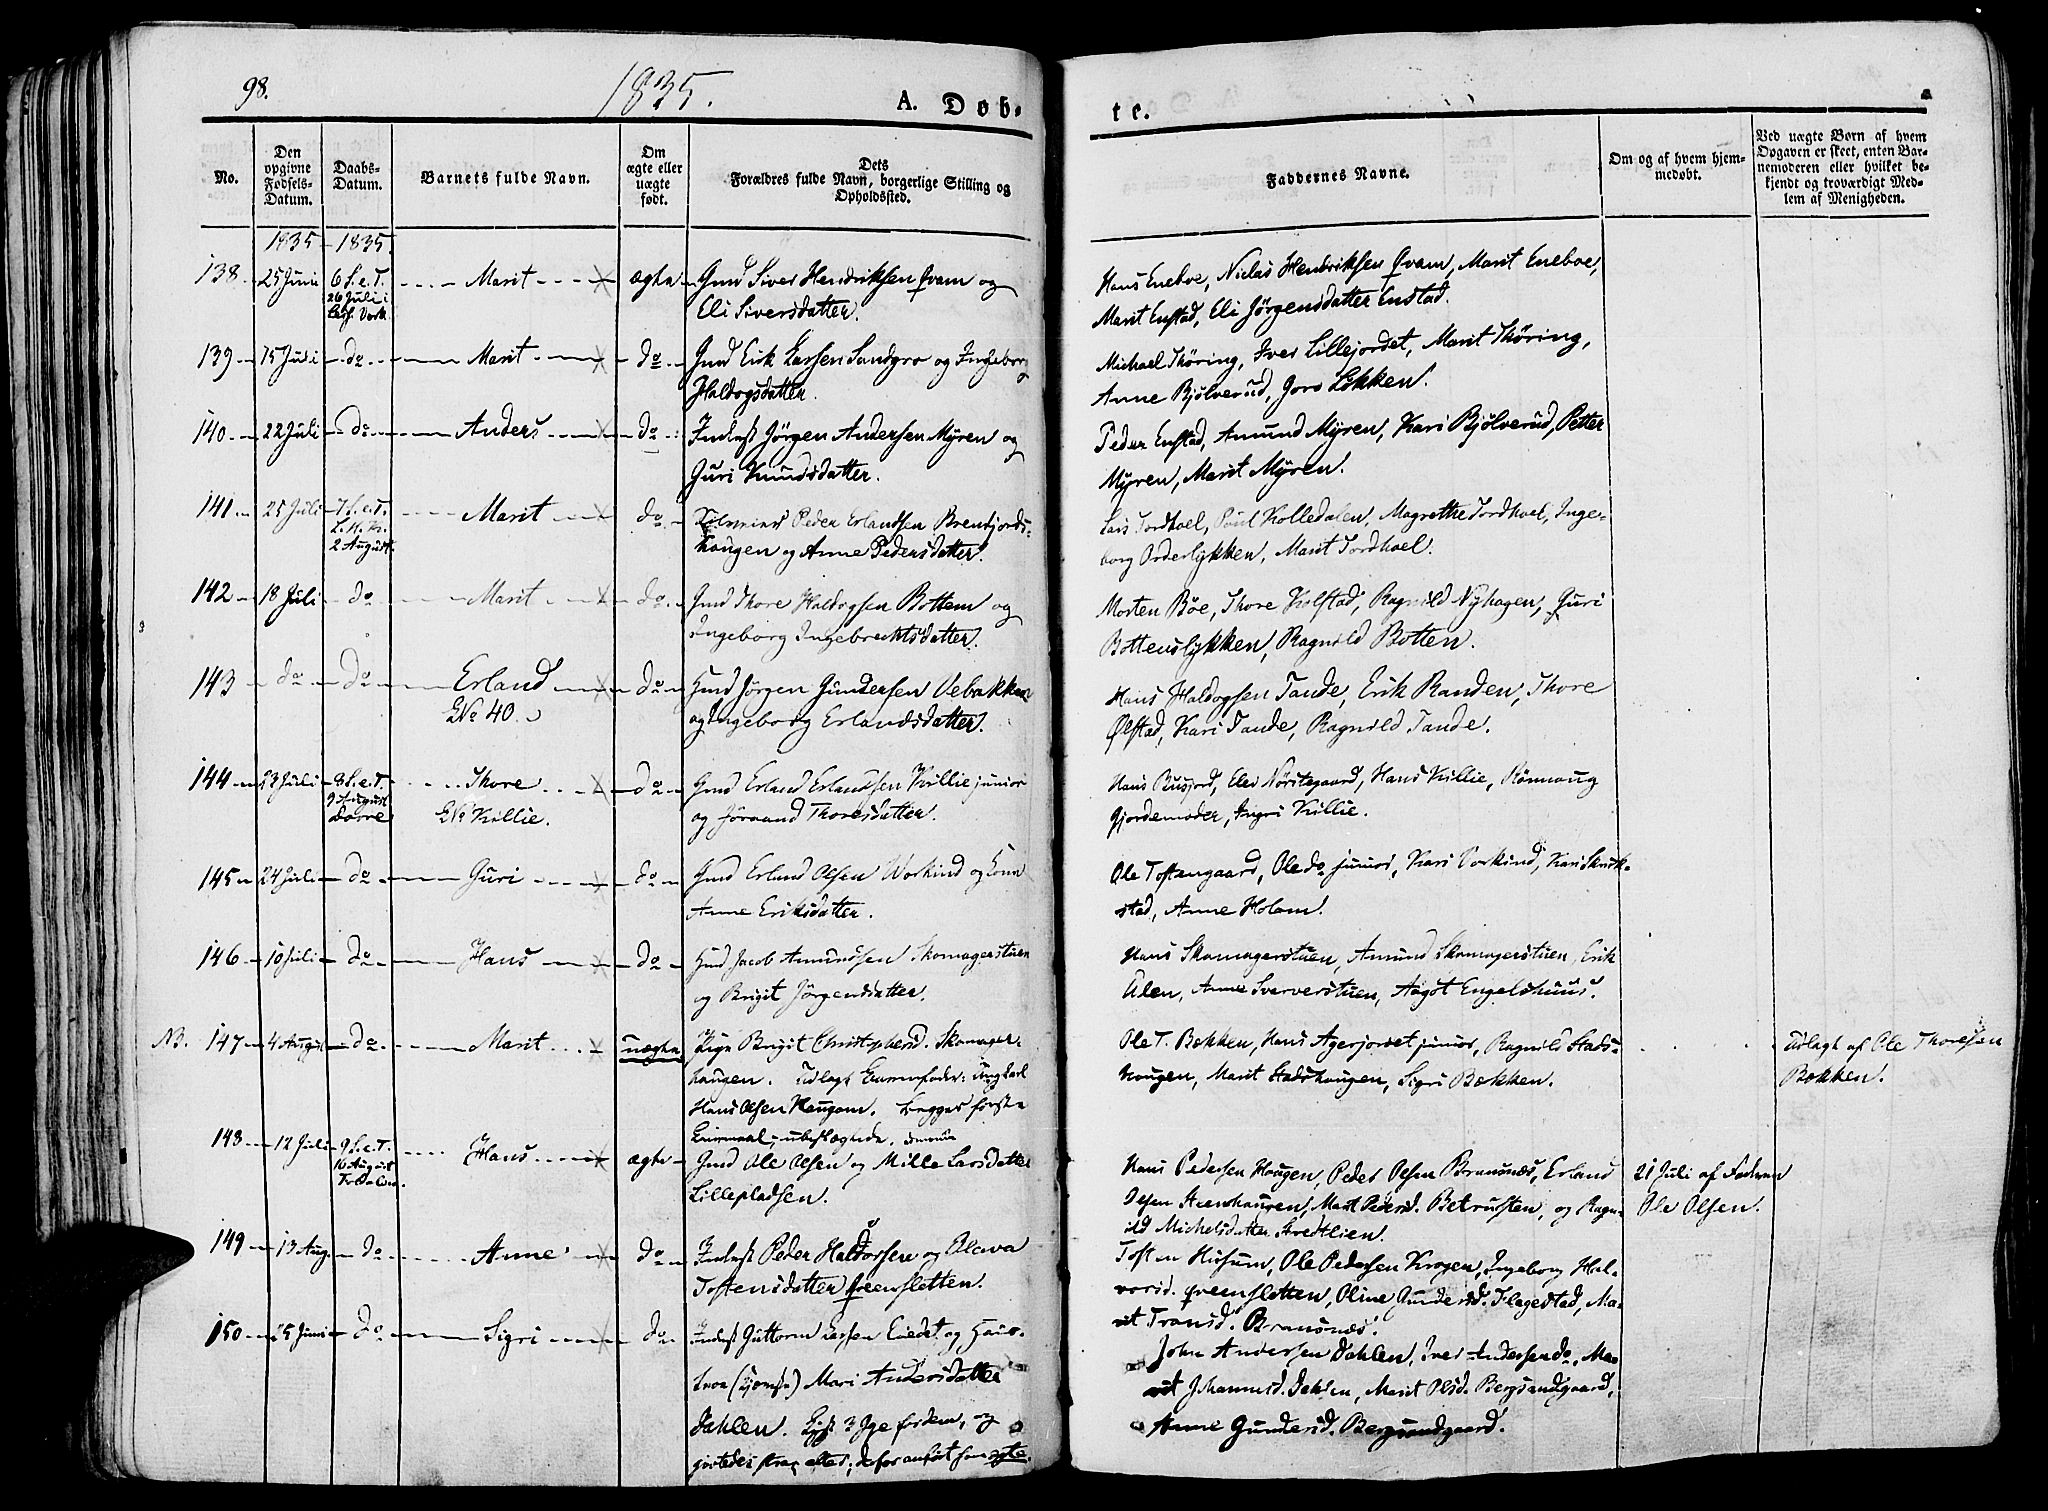 98.
1835.
A. Døb-
te.
No.
Den opgivne Fødsels-Datum.
Daabs-Datum.
Barnets fulde Navn.
Om ægte eller uægte født.
Dets Forældres fulde Navn, borgerlige Stilling og Opholdssted.
Faddernes Navne.
Om og af hvem hjem-medøbt.
Ved uægte Børn af hvem Opgaven er skeet, enten Bar-nemoderen eller hvilket be-kjendt og troværdigt Med-lem af Menigheden.
1835 - 1835.
138 - 25 Juni 6 S.e.T. 26 Juli i Marit ægte Gmd Siver Hendriksen Qvam og
Eli Siversdatter.
Hans Eneboe, Niclas Hendriksen Qvam, Marit Eneboe,
Marit Enstad, Eli Jörgensdatter Enstad.
139 - 15 Juli do Marit do Gmd Erik Larsen Sandgro og Ingeborg
Haldogsdatter.
Michael Thöring, Iver Lillejordet, Marit Thöring,
Anne Bjölverud, Joro Lökken.
140 - 22 Juli do Anders do Inderst Jörgen Andersen Myren og
Guri Knudsdatter.
Peder Enstad, Amund Myren, Kari Bjölverud, Petter
Myren, Marit Myren.
141 - 25 Juli 7 S.e.T. L.H.K. 2 August Marit do Peder Erlandsen Brenjords-
haugen og Anne Pedersdatter.
Lars Jordhoel, Poul Kolledalen, Magrethe Jordhoel, Inge-
borg Orderlykken, Marit Jordhoel.
142 - 18 Juli do Marit do Gmd Thore Haldogsen Bottem og
Ingeborg Ingebrechtsdatter.
Morten Böe, Thore Kolstad, Ragnild Nyhagen, Guri
Bottenslykken, Ragnild Botten.
143 do do Erland do Hmd Jörgen Gundersen Vebakken
No 40.
og Ingeborg Erlandsdatter.
Hans Haldogsen Tande, Erik Randen, Thore
Ølstad, Kari Tande, Ragnild Tande.
144 - 23 Juli 8 S.e.T. 9 August Dovre Thore do Gmd Erland Erlandsen Killie junior
No Killie.
og Jöraand Thoresdatter.
Hans Busjord, Elev Nörstegaard, Hans Killie, Rönnaug
Gjordemoder, Ingri Killie.
145 - 24 Juli do Guri do Gmd Erland Olsen Workind og Kone
Anne Eriksdatter.
Ole Toftengaard, Ole do junior, Kari Vorkind, Kari
stad, Anne Holam.
146 - 10 Juli do Hans do Hmd Jacob Amundsen Skomagerstuen
og Brigit Jörgensdatter.
Hans Skomagerstuen, Amund Skomagerstuen, Erik
Ulen, Anne Sververstuen, Aagot Engelshuus.
NB. 147 - 4 August do Marit uægte Pige Brigit Christophersd. Skomager-
haugen. Udlagt Barnefader: Ungkarl
Hans Olsen Haugom. Begges første
Leiermaal, ubeslægtede.
Ole T. Bækken, Hans Agerjordet junior, Ragnild Stads-
haugen, Marit Stadshaugen, Sigri Bækken.
Udlagt af Ole Thoresen
Bækken.
148 - 12 Juli 9 S.e.T. 16 August Hans ægte Gmd Ole Olsen og Mille Larsdatter
Lillepladsen.
Hans Pedersen Haugen, Peder Olsen Bransnæs, Erland
Olsen Steenhaugen, Marit Pedersd. Betrusten, og Ragn-
ild Michelsdatter Bredlien.
21 Juli af Faderen
Ole Olsen.
149 - 13 Aug. do Anne do Inderst Peder Haldorsen og Olava
Tostensdatter Qveensletten.
Tosten Husum, Ole Pedersen Krogen, Ingeborg Hal-
vorsd. Qveensletten, Oline Gundersd. Flagestad, Ma-
rit Transd. Bransnæs.
150 - 25 Juni do Sigri do Inderst Guttorm Larsen Eidet og Hus-
troe Mari Andersdatter
Dahlen.
John Andersen Dahlen, Iver Andersen do, Ma-
rit Johannesd. Dahlen, Marit Olsd. Bergsandgaard,
Anne Gundersd. Bergsandgaard.